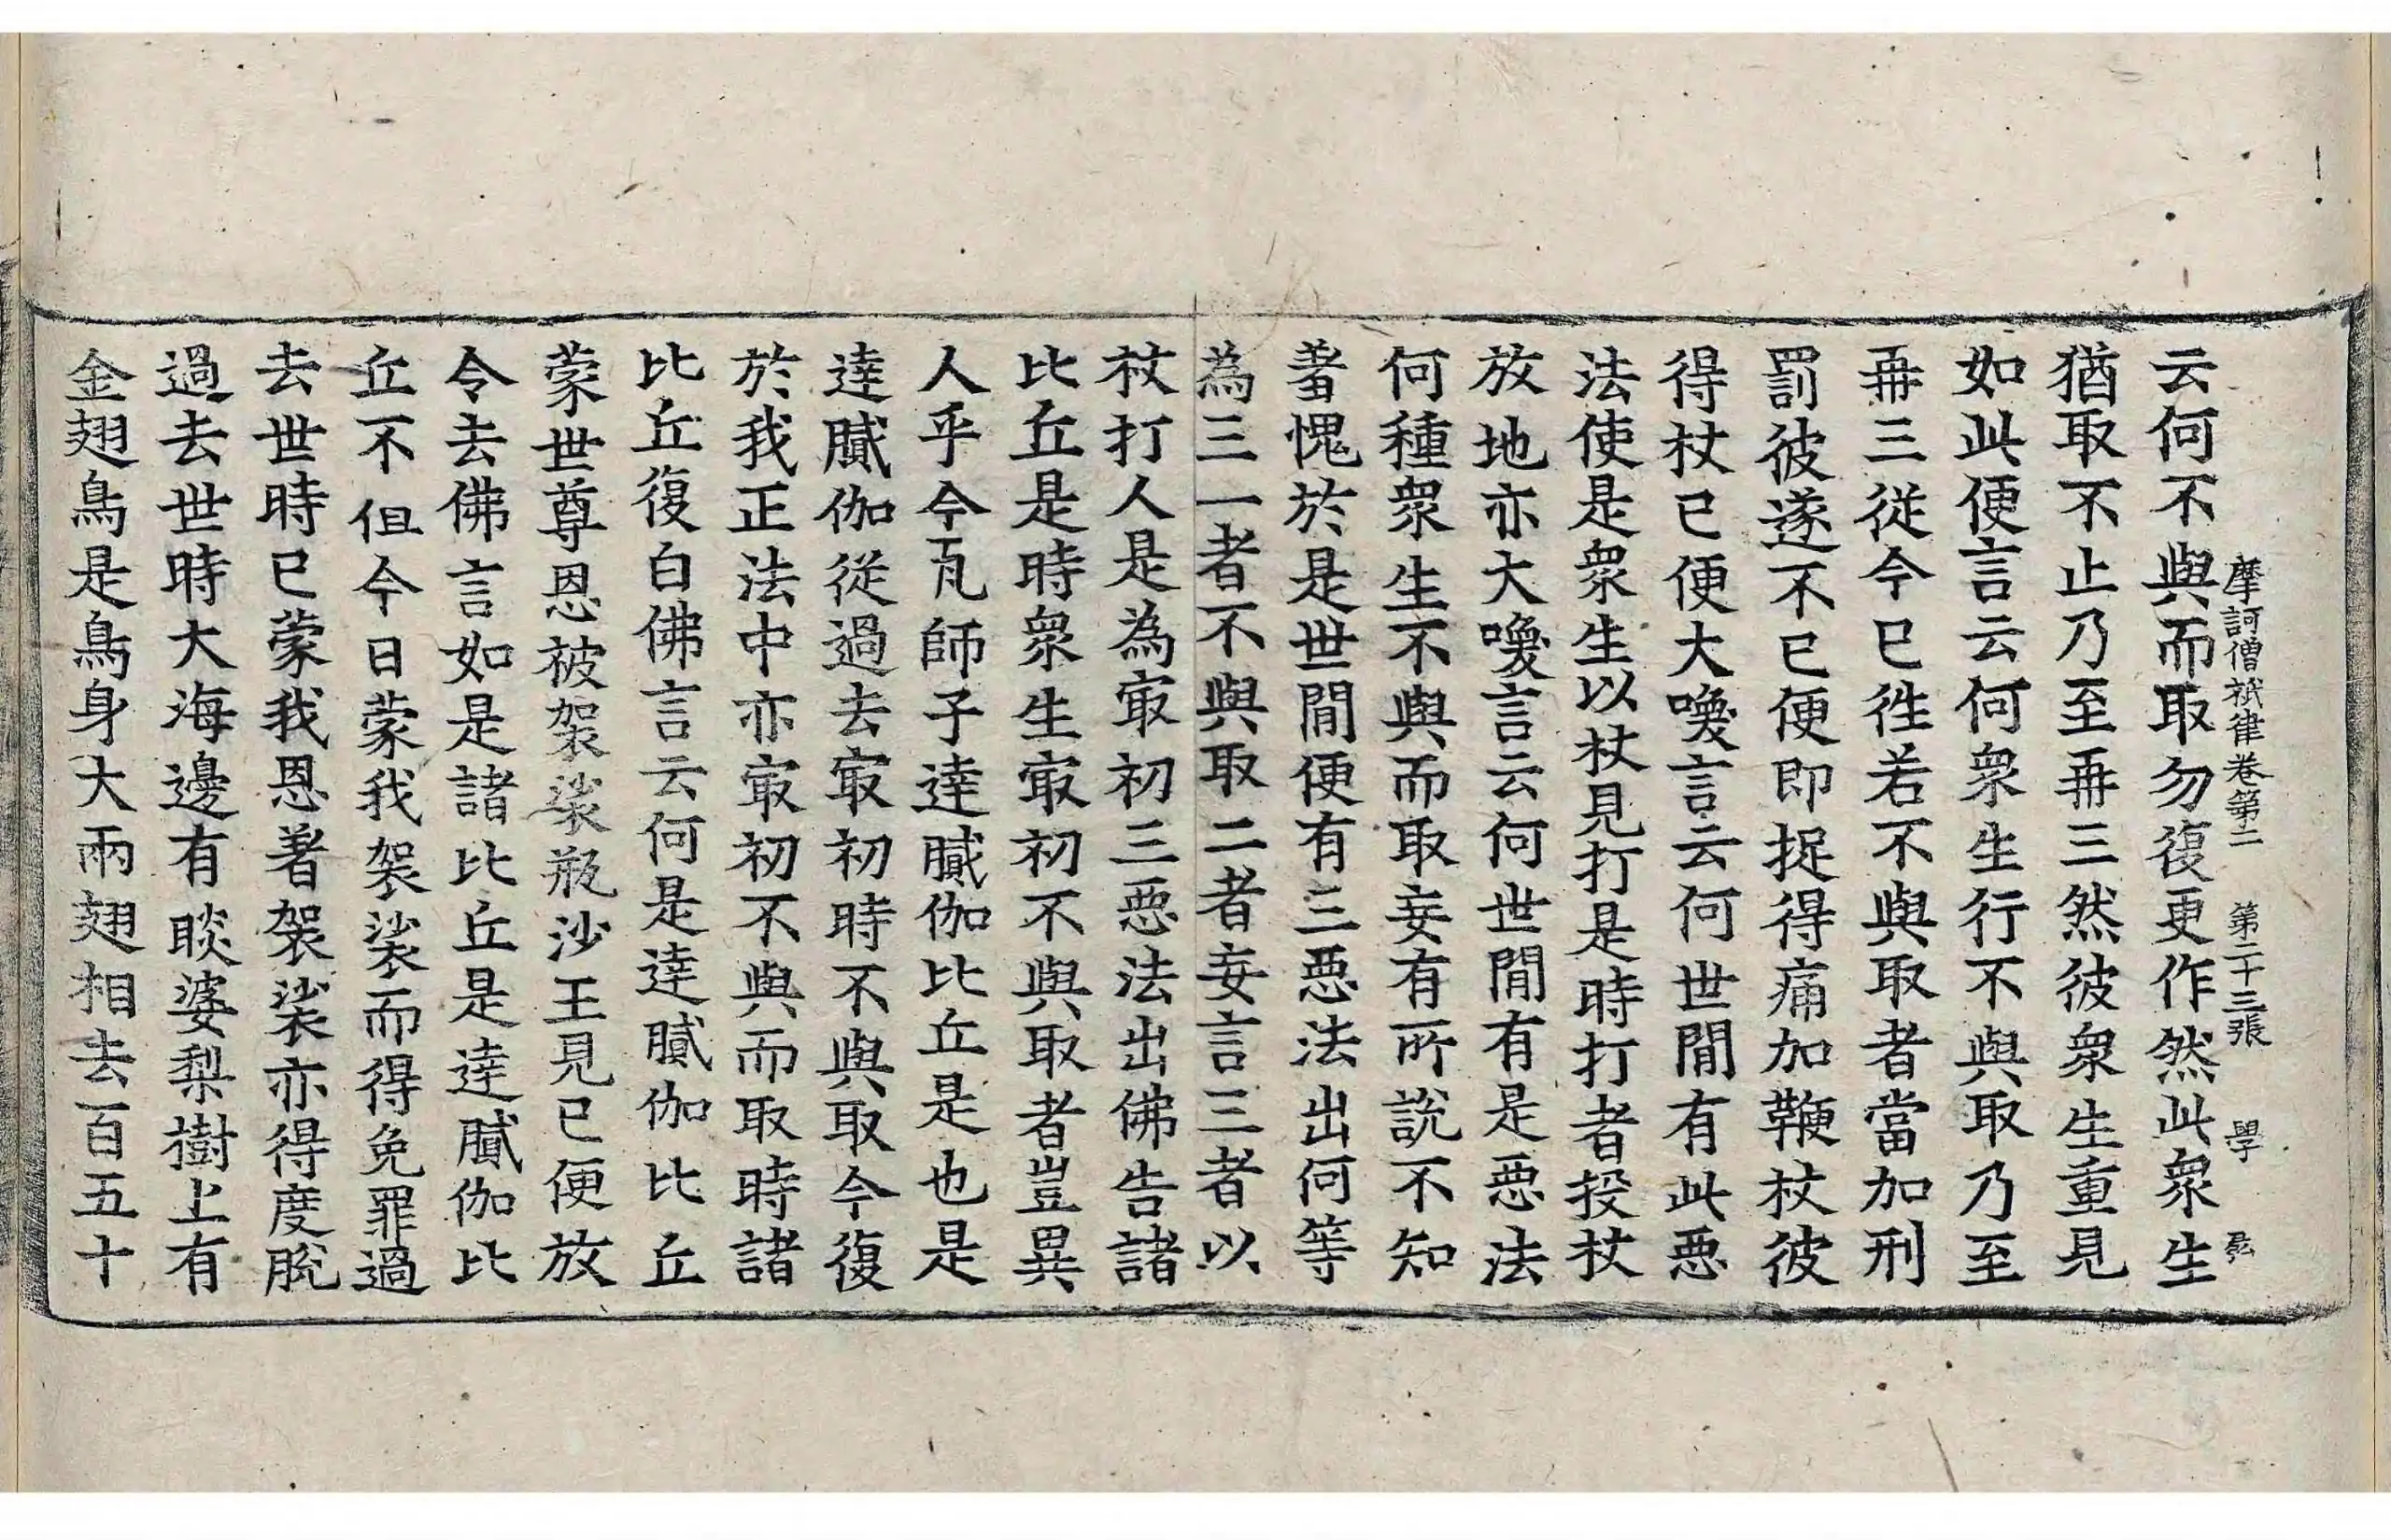 摩訶僧祇律卷第二 第二十三張 學
云何不與而取勿復更作然此衆生
猶取不止乃至再三然彼衆生重見
如此便言云何衆生行不與取乃至
再三從今已徃若不與取者當加刑
罰彼遂不已便即捉得痛加鞭杖彼
得杖已便大喚言云何世間有此惡
法使是衆生以杖見打是時打者投杖
放地亦大喚言云何世間有是惡法
何種衆生不與而取妄有所說不知
羞愧於是世間便有三惡法出何等
為三一者不與取二者妄言三者以
杖打人是為冣初三惡法出佛告諸
比丘是時衆生冣初不與取者豈異
人乎今瓦師子達膩伽比丘是也是
達膩伽從過去冣初時不與取今復
於我正法中亦冣初不與而取時諸
比丘復白佛言云何是達膩伽比丘
蒙世尊恩被袈裟瓶沙王見已便放
令去佛言如是諸比丘是達膩伽比
丘不但今日蒙我袈裟而得免罪過
去世時已蒙我恩著袈裟亦得度脫
過去世時大海邊有睒婆梨樹上有
金翅鳥是鳥身大兩翅相去百五十